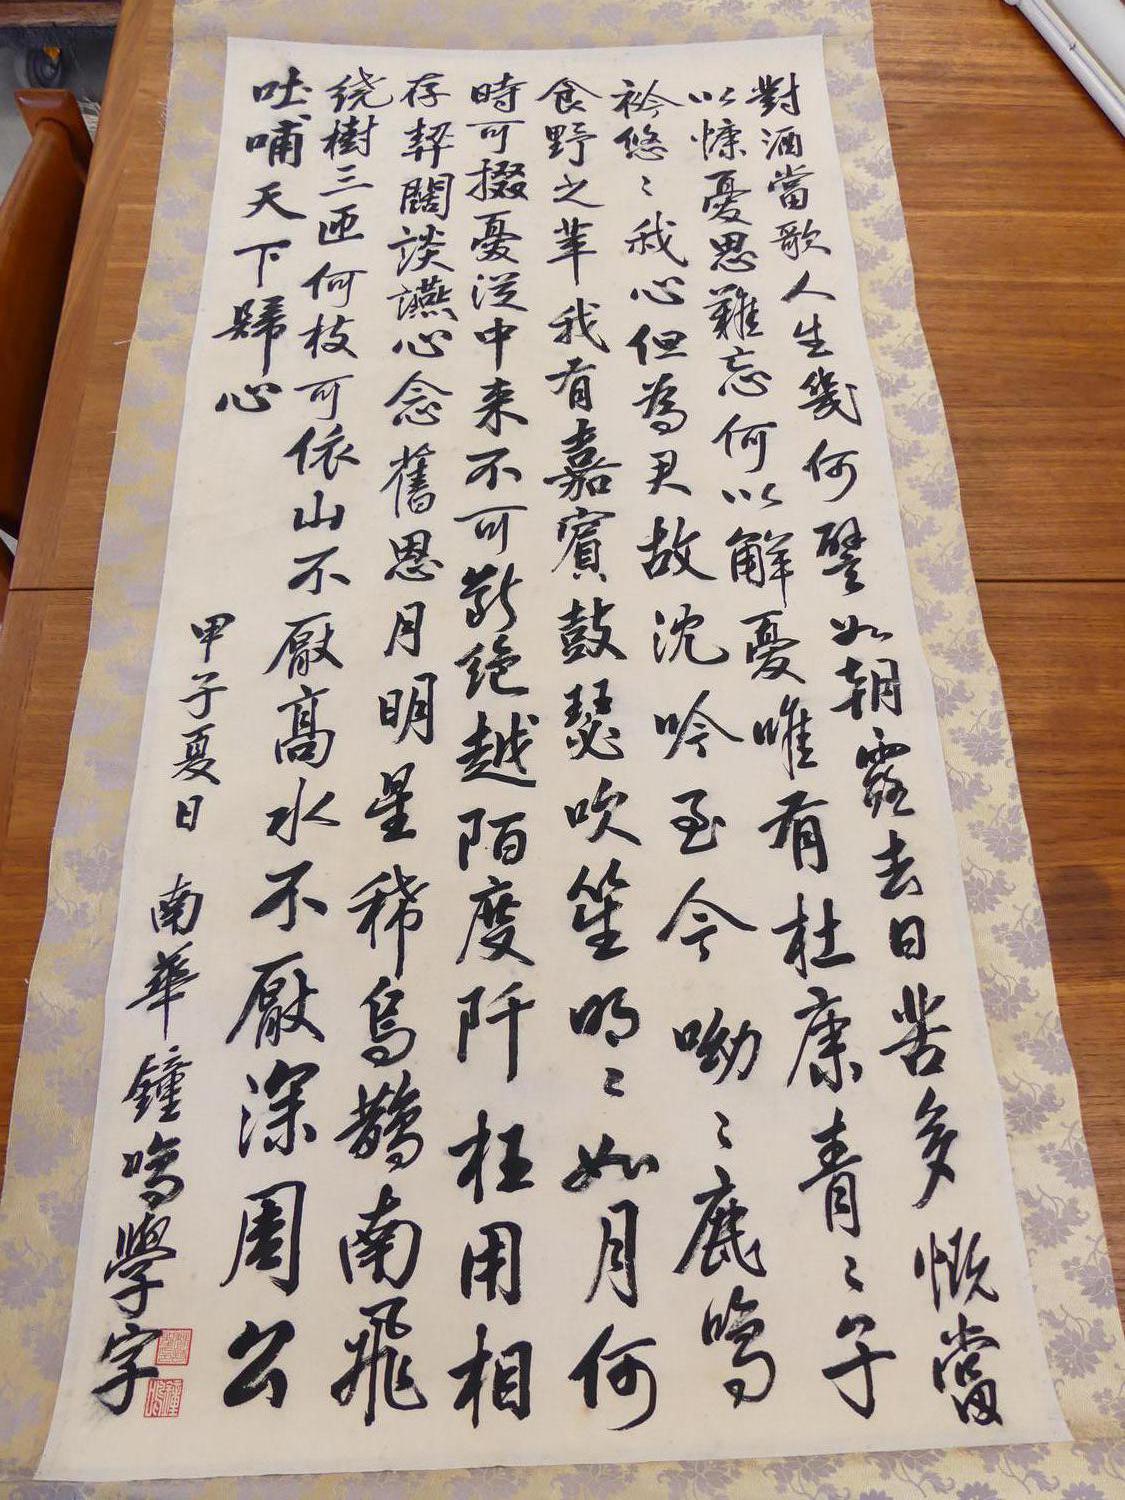 對酒當歌人生幾何譬如朝露去日苦多慨當
以慷憂思難忘何以解憂唯有杜康青〻子
衿悠〻我心但為君故沈吟至今呦〻鹿鳴
食野之苹我有嘉賓鼓瑟吹笙明〻如月何
時可掇憂從中来不可断絶越陌度阡枉用相
存契闊談讌心念舊恩月明星稀烏鵲南飛
绕樹三匝何枝可依山不厭高水不厭深周公
吐哺天下歸心
甲子夏日 南華鐘鳴學字